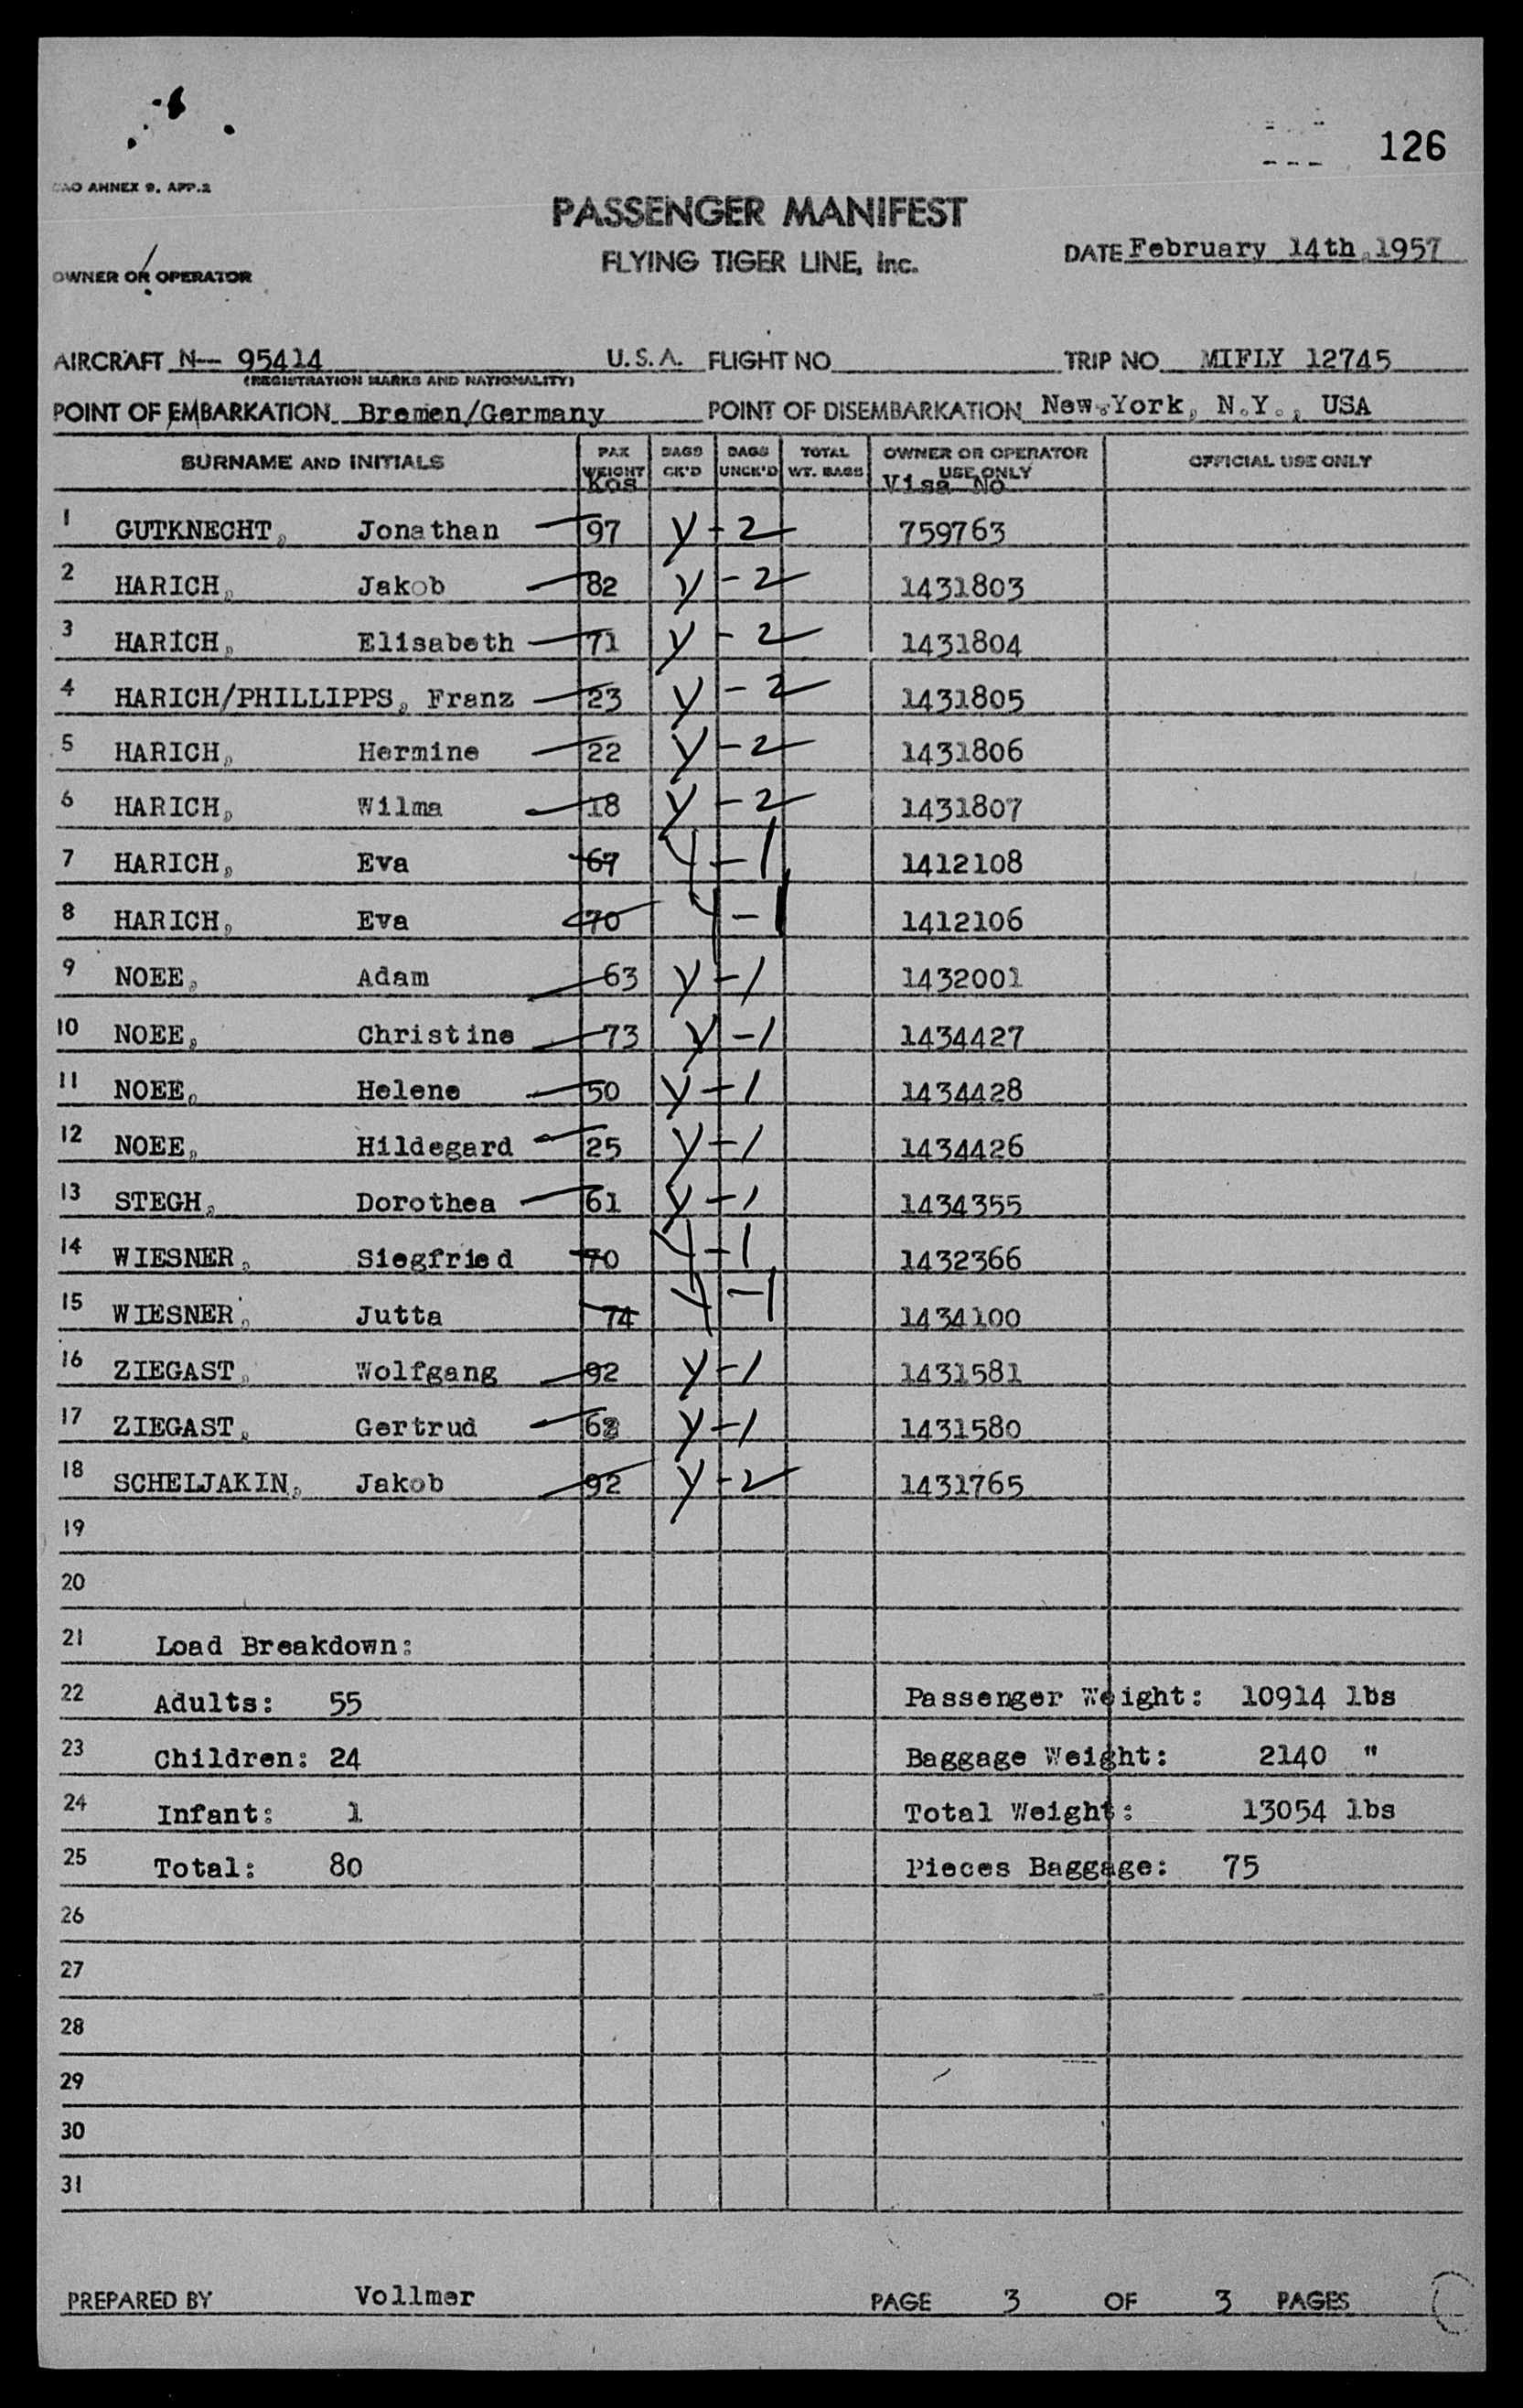 126
ANNEX 9, APP.2
PASSENGER MANIFEST
FLYING TIGER LINE, Inc.
DATE February 14th, 1957
OWNER OR OPERATOR
AIRCRAFT N-- 95414 U.S.A. FLIGHT NO TRIP NO MIFLY 12745
(REGISTRATION MARKS AND NATIONALITY)
POINT OF EMBARKATION Bremen/Germany POINT OF DISEMBARKATION New York, N.Y., USA
SURNAME AND INITIALS PAX WEIGHT Kos BAGS CK'D BAGS UNCK'D TOTAL WT. BAGS OWNER OR OPERATOR USE ONLY Visa No OFFICIAL USE ONLY
1 GUTKNECHT, Jonathan 97 y - 2 759763
2 HARICH, Jakob 82 y - 2 1431803
3 HARICH, Elisabeth 71 y - 2 1431804
4 HARICH/PHILLIPPS, Franz 23 y - 2 1431805
5 HARICH, Hermine 22 y - 2 1431806
6 HARICH, Wilma 18 y - 2 1431807
7 HARICH, Eva 67 y - 1 1412108
8 HARICH, Eva 70 y - 1 1412106
9 NOEE, Adam 63 y - 1 1432001
10 NOEE, Christine 73 y - 1 1434427
11 NOEE, Helene 50 y - 1 1434428
12 NOEE, Hildegard 25 y - 1 1434426
13 STEGH, Dorothea 61 y - 1 1434355
14 WIESNER, Siegfried 70 y - 1 1432366
15 WIESNER, Jutta 74 y - 1 1434100
16 ZIEGAST, Wolfgang 92 y - 1 1431581
17 ZIEGAST, Gertrud y - 1 1431580
18 SCHELJAKIN, Jakob 92 y - 2 1431765
19
20
21 Load Breakdown:
22 Adults: 55 Passenger Weight: 10914 lbs
23 Children: 24 Baggage Weight: 2140 "
24 Infant: 1 Total Weight: 13054 lbs
25 Total: 80 Pieces Baggage: 75
26
27
28
29
30
31
PREPARED BY Vollmer PAGE 3 OF 3 PAGES